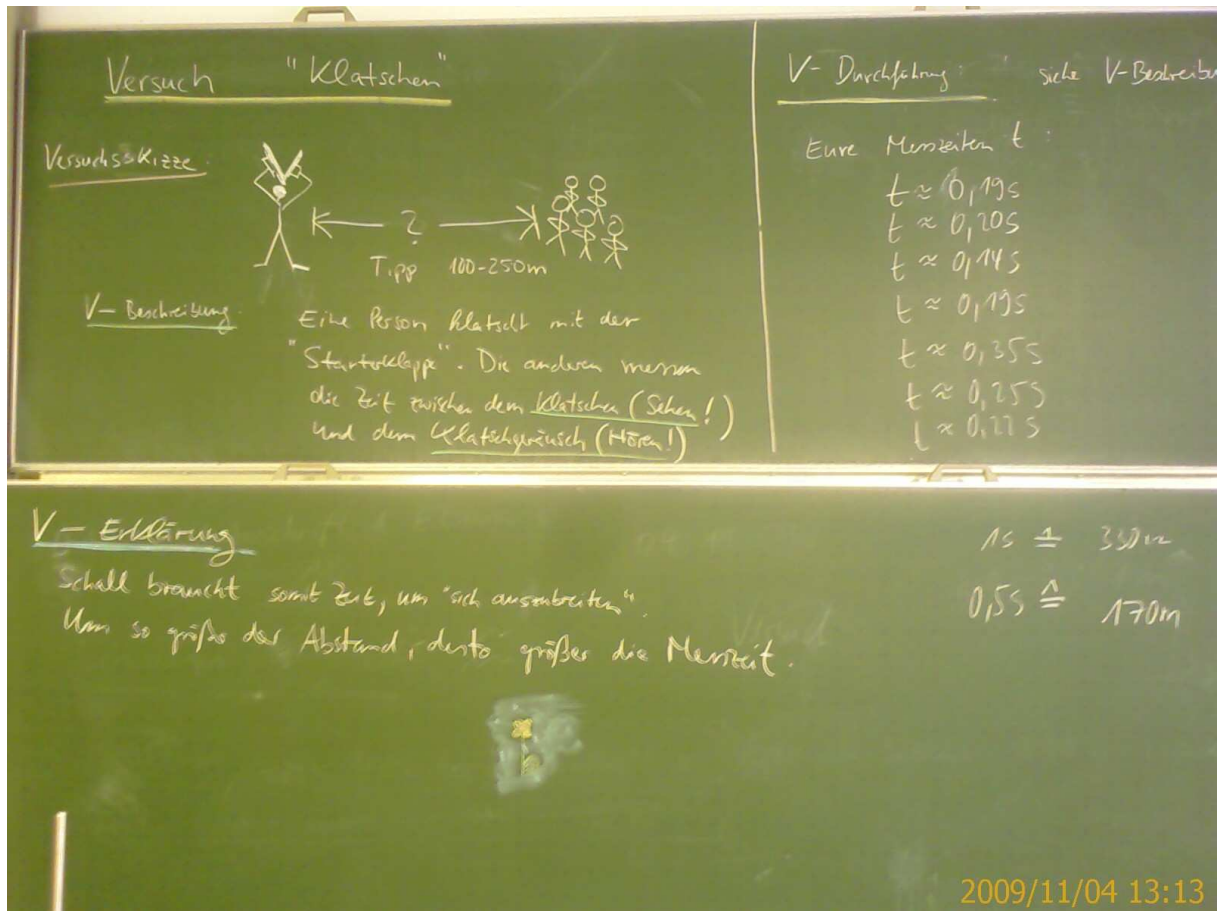 Versuch "Klatschen"
Versuchsskizze:
?
Tipp 100-250m
V- Beschreibung:
Eine Person klatscht mit der
"Starterklappe". Die anderen messen
die Zeit zwischen dem Klatschen (Sehen!)
und dem Klatschgeräusch (Hören!)
V- Durchführung: siehe V-Beschreibu
Eure Messzeiten t:
t ≈ 0,19s
t ≈ 0,20s
t ≈ 0,14s
t ≈ 0,19s
t ≈ 0,35s
t ≈ 0,25s
t ≈ 0,22s
V- Erklärung
Schall braucht somit Zeit, um "sich auszubreiten".
Um so größer der Abstand, desto größer die Messzeit.
1s ≙
0,5s ≙ 170m
2009/11/04 13:13